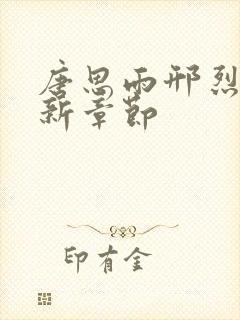 唐思雨邢烈
新章节
印有金